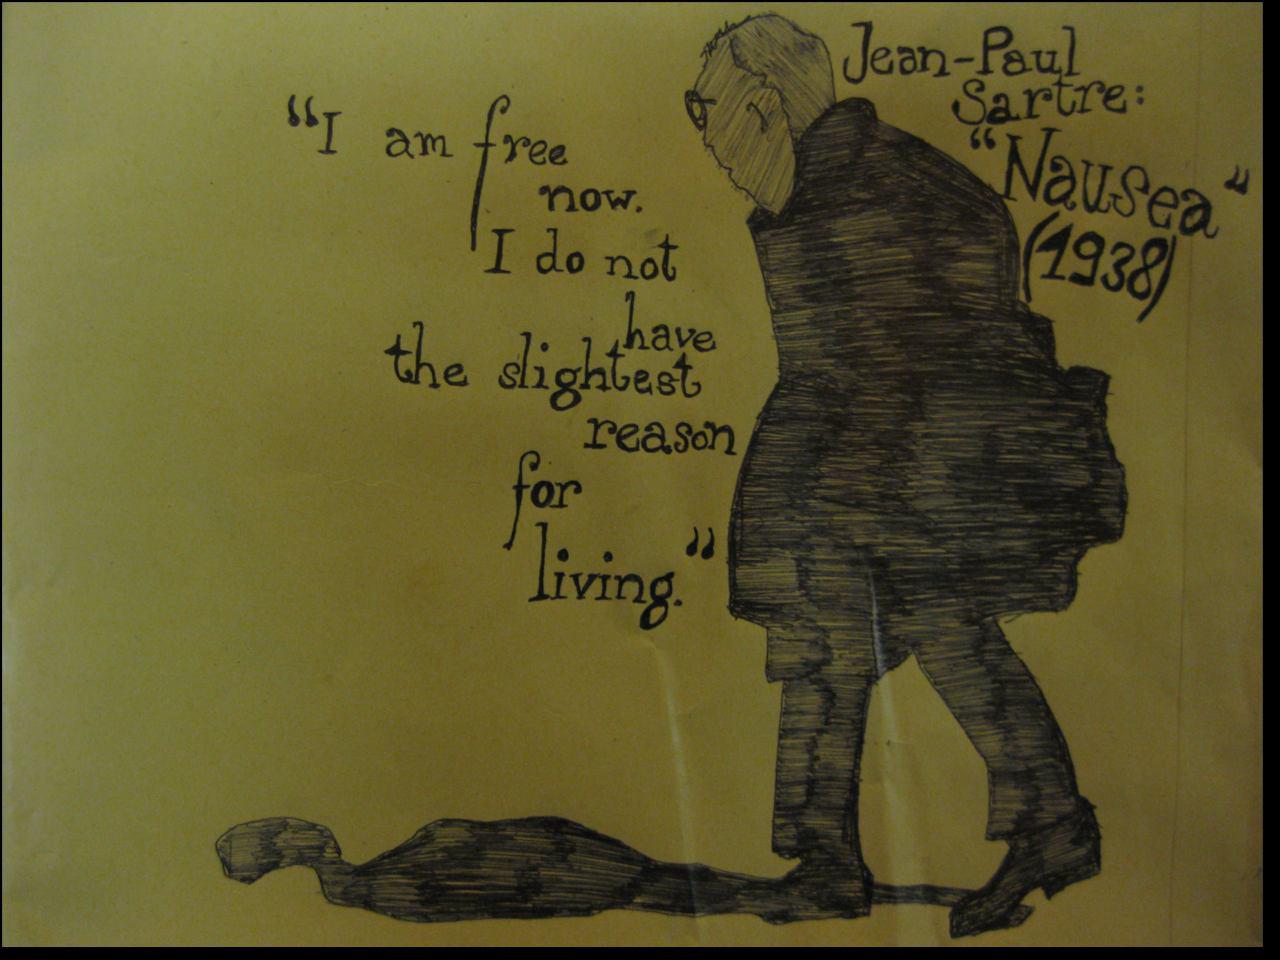 “I am free
now.
I do not
have
the slightest
reason
for
living.”
Jean-Paul
Sartre:
“Nausea”
(1938)